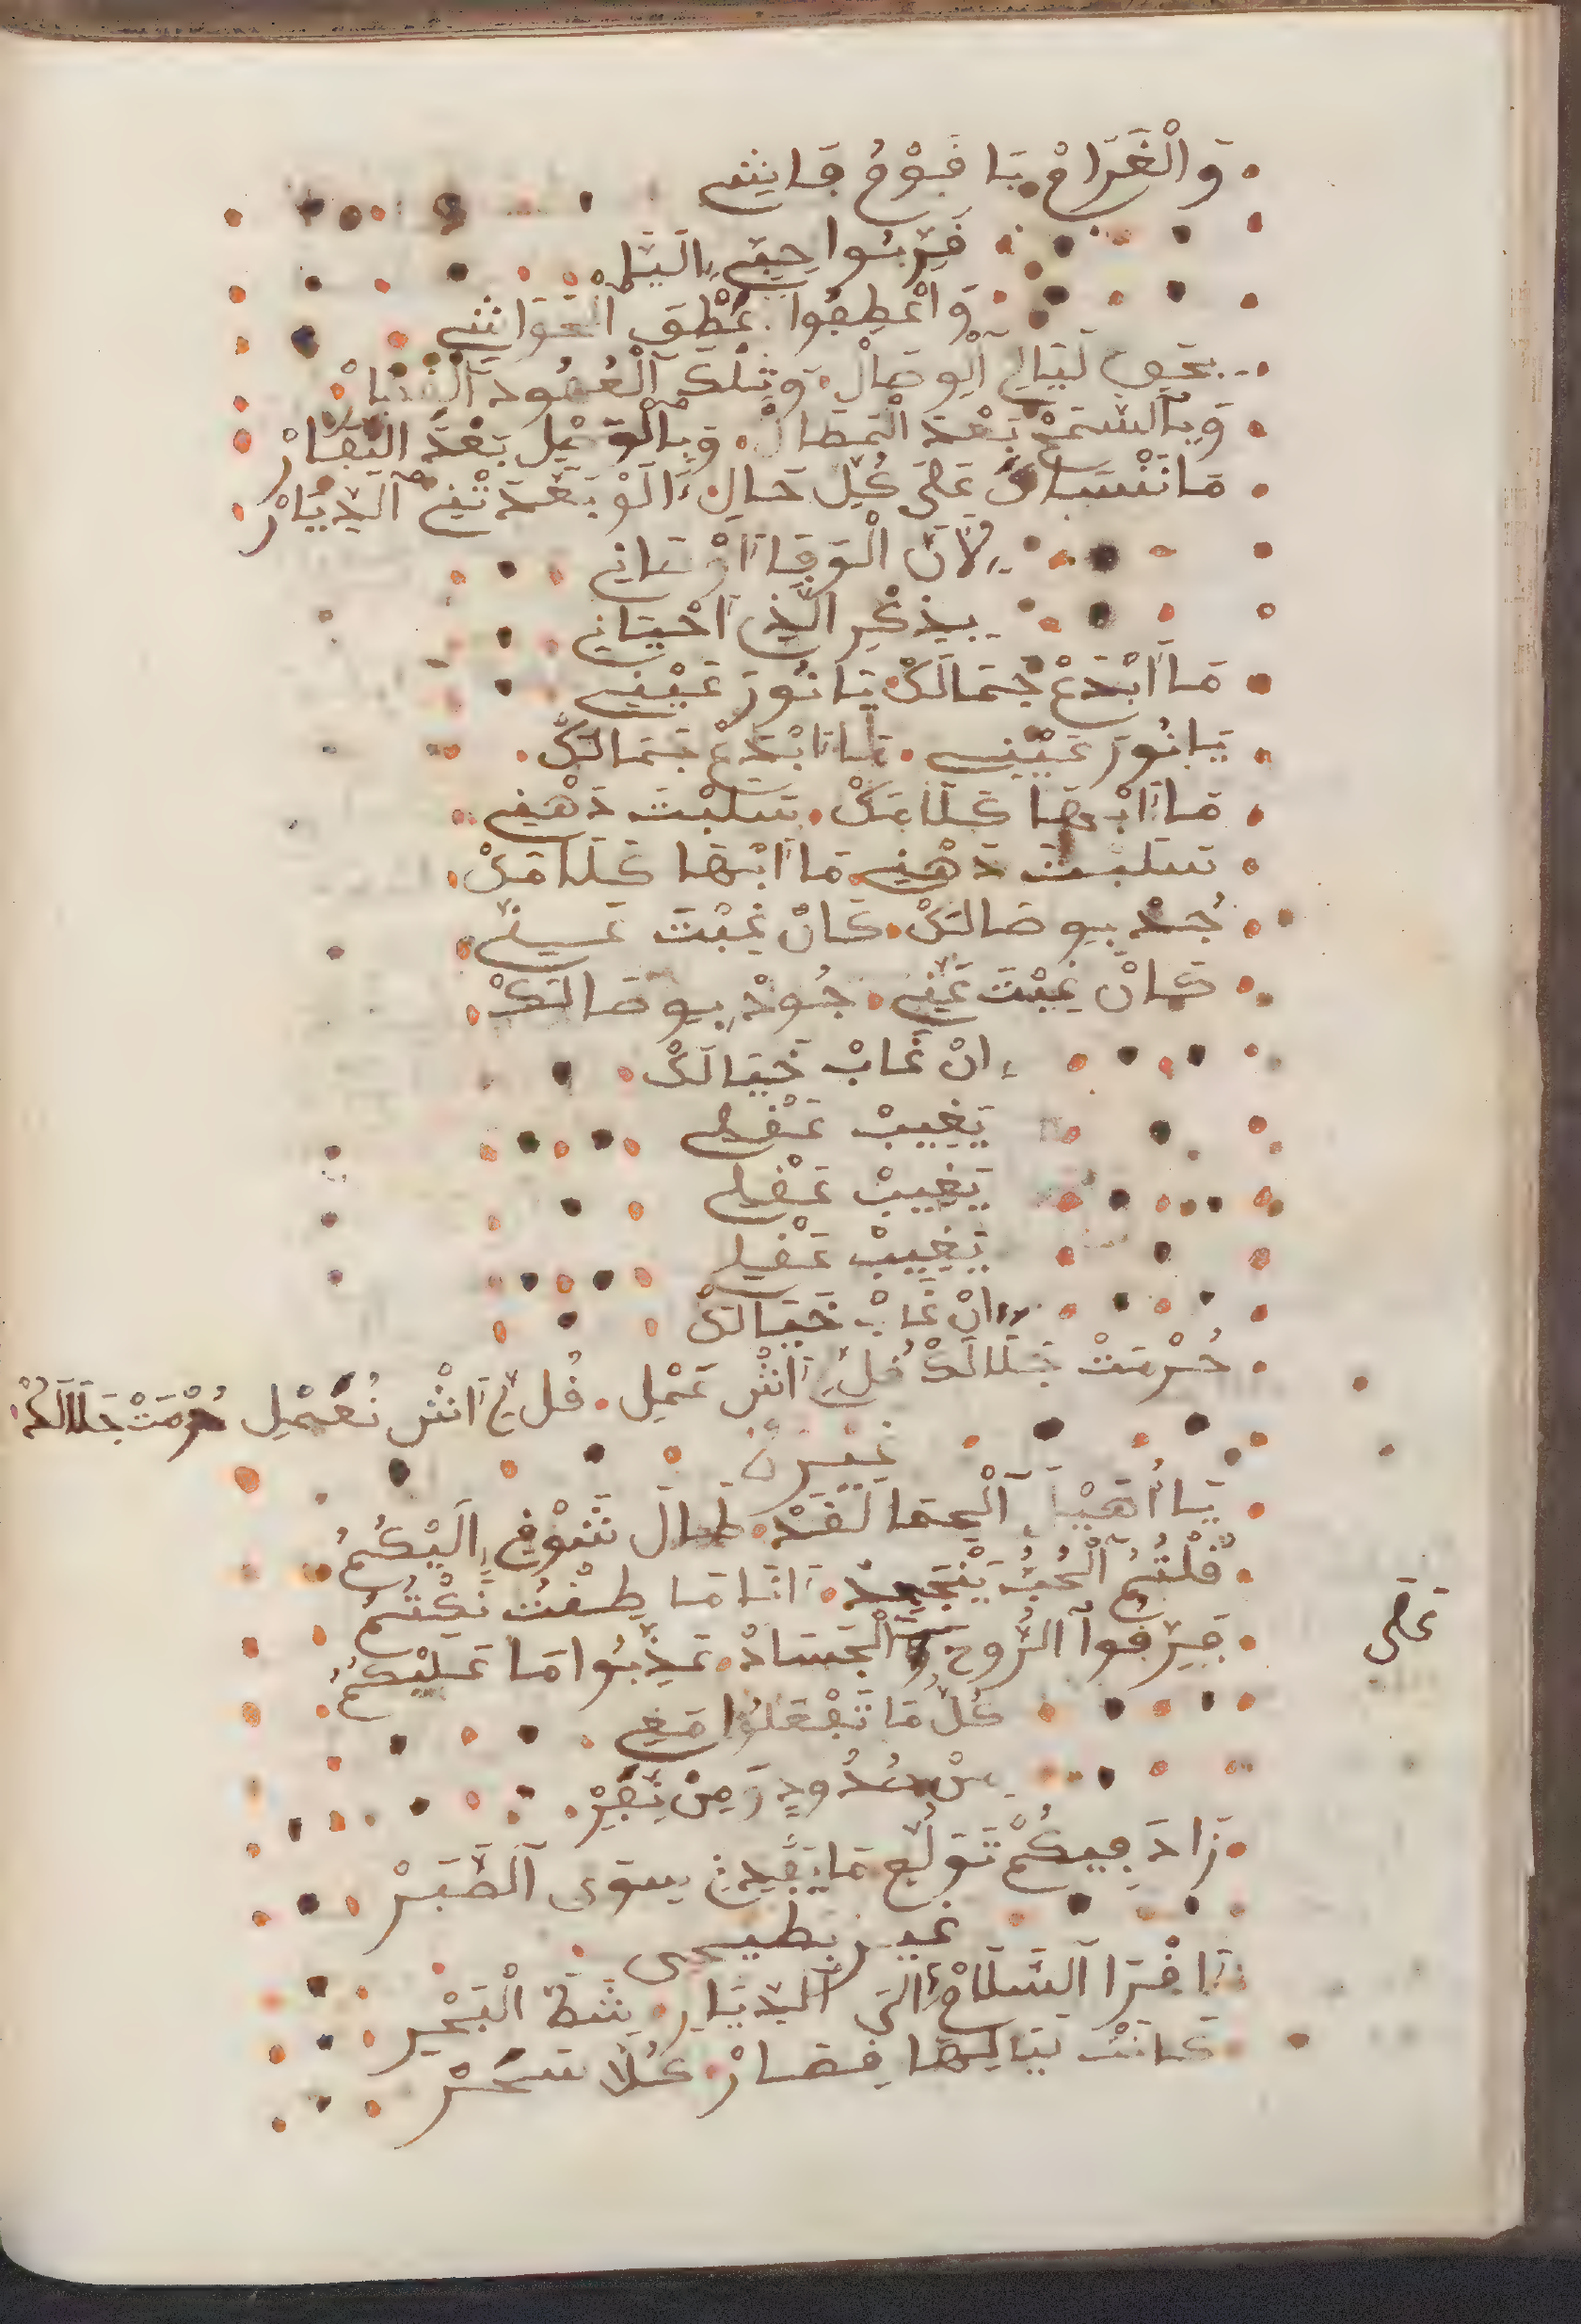 وَالْغَرَامْ يَا قَوْمْ فَانِي
قَرِّبُوا حِبِّي اِلَيَّا
وَاعْطِفُوا عَطْفَ
بِحَقِ لَيَالِ آلْوِصَالْ وَتِلْكَ آلْعُهُود
وَبِآلسَّمْعِ بَعْدَ الْمِطَالْ وَبِآلْوَصْلِ بَعْدَ النِّفَارْ
مَا نَنْسَاكْ عَلَى كُلِّ حَالِ اَلَوْ بَعَّدَتْنِي آلدِّيَارْ
لِاَنَّ الْوَفَا اَرْ
بِذِكْرِ الَّذِي اَحْيَانِي
مَا اَبْدَعْ جَمَالَكْ يَا نُورَ عَيْنِي
يَا نُورَ عَيْنِي مَا اَبْدَعْ جَمَالَكْ
مَا اَبْهَا كَلَامَكْ سَلَبْتَ ذَهْنِي
سَلَبْتَ ذَهْنِي مَا اَبْهَا كَلَامَكْ
جُدْ بِوِصَالَكْ كَانْ غِبْتَ عَنِّي
كَانْ غِبْتَ عَنِّي جُودْ بِوِصَالَكْ
اِنْ غَابْ خَيَالَكْ
يَغِيبْ عَقْلِي
يَغِيبْ عَقْلِي
يَغِيبْ عَقْلِي
اِنْ غَابْ خَيَالَكْ
حُرْمَتْ جَلَالَكْ قُلِّ اَشْ عَمْلِ قُلِّ اَشْ نُعْمْلِ حُرْمَتْ جَلَالَكْ
غَيْرُ
يَا اُهَيْلَ آلْحِمَا لَقَدْ طَالَ شَوْقِي اِلَيْكُمُ
قُلْتُمُ آلْحُبُّ يَنْجَحِدْ اَنَا مَا طِقْتُ نَكْتُمُ
فَرِّقُوا آلرُّوحَ وَآلْجَسَادْ عَذِّبُوا مَا عَلَيْكُمُ
عَلَى
كُلُّ مَا تَفْعَلُوا مَعِي
مِنْ صُدُودٍ وَمِنْ
زَادَ فِيكُمْ تَوَلُّعِ مَا يُفِيدْنِ سِوَى آلصَّبَرْ
غير بطيحى
اَقْرَا آلسَّلَامْ اِلَى آلدِّيَارِ بِشَطِّ الْبَحْرِ
كَانَتْ لَيَالِهَا قِصَارْ كُلَّا سَحَرْ